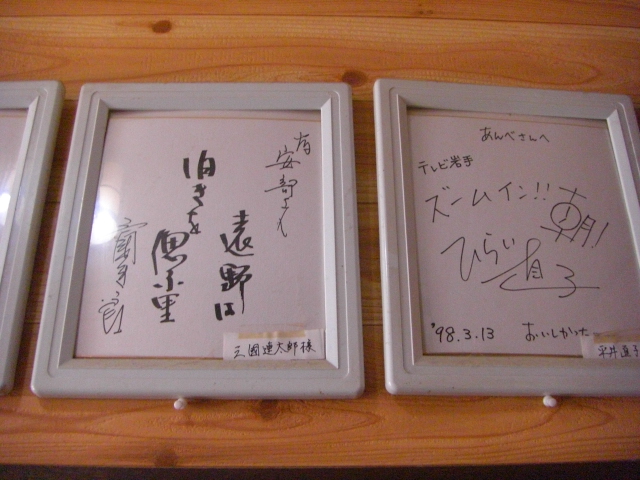 安部さん
遠野は
泊きを
思ふ里
三國連太郎様
あんべさんへ
テレビ岩手
ズームイン!!朝!
ひらい直子
'98.3.13 おいしかった
平井直子